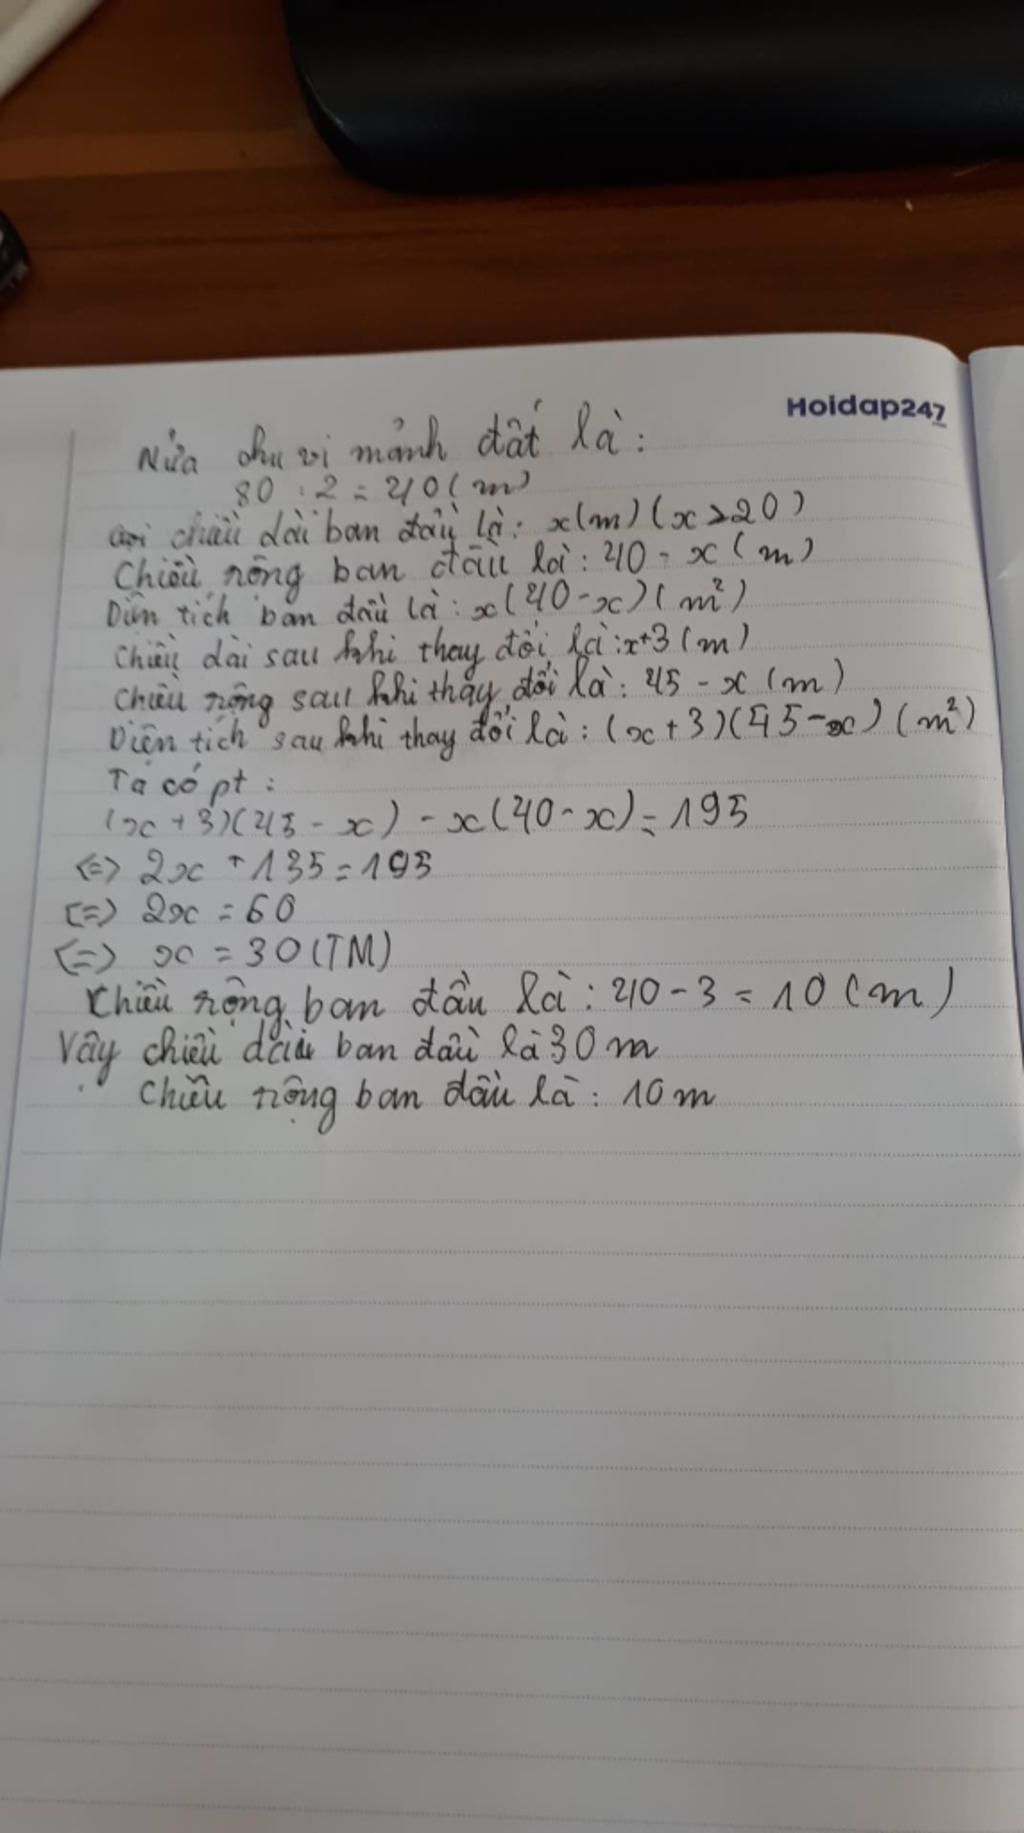 Hoidap247
Nửa chu vi mảnh đất là:
80 : 2 = 40 (m)
Gọi chiều dài ban đầu là: x(m) (x>20)
Chiều rông ban đầu là: 40 - x (m)
Diện tích ban đầu là: x(40-x) (m²)
Chiều dài sau khi thay đổi là: x+3 (m)
Chiều rông sau khi thay đổi là: 45 - x (m)
Diện tích sau khi thay đổi là: (x+3)(45-x) (m²)
Ta có pt:
(x+3)(45-x) - x(40-x) = 195
<=> 2x + 135 = 195
<=> 2x = 60
<=> x = 30 (TM)
Chiều rộng ban đầu là: 40 - 3 = 10 (m)
Vây chiều dài ban đầu là 30 m
Chiều rộng ban đầu là: 10 m